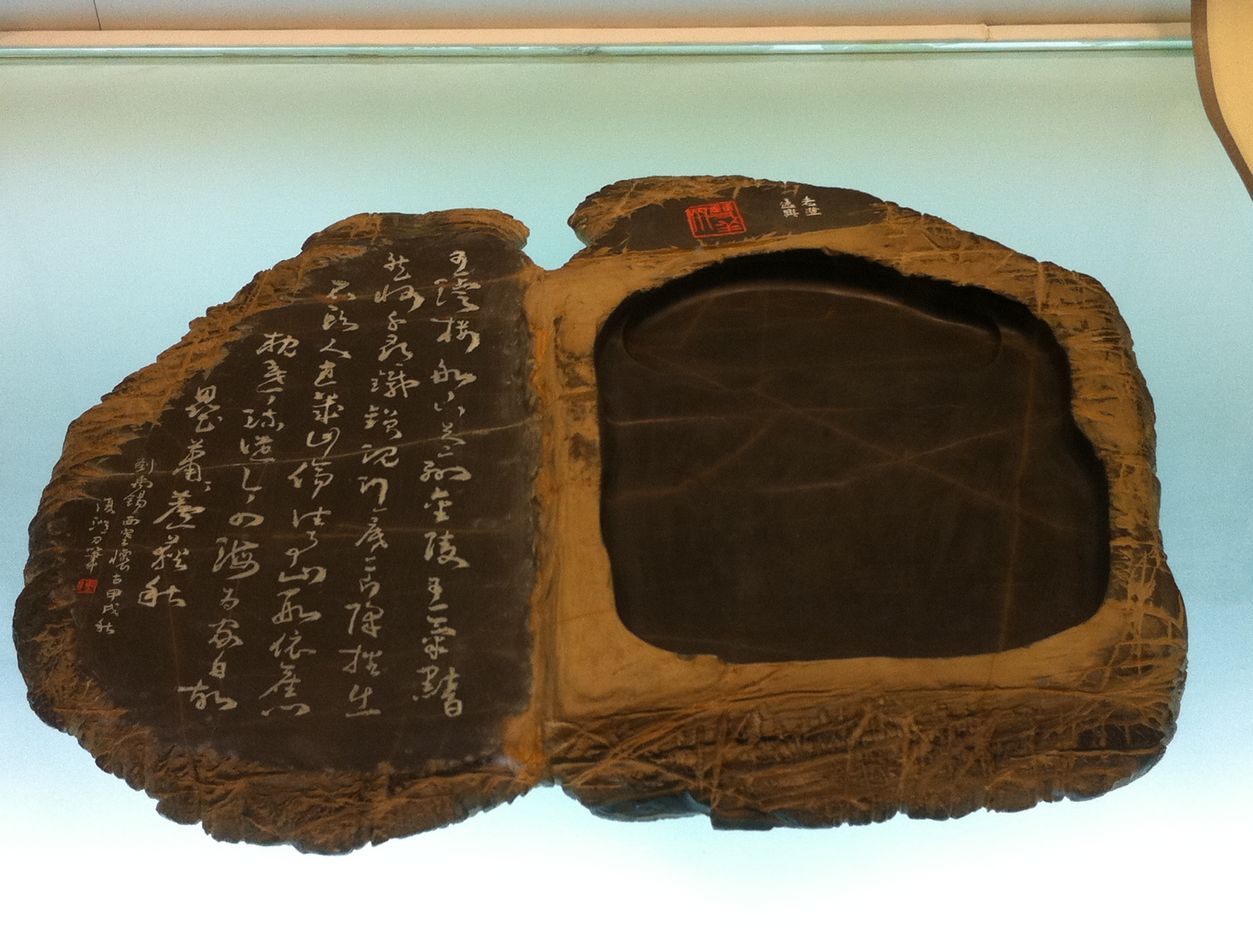 王濬樓船下益州金陵王氣黯
然收千尋鐵鎖沉江底一片降幡出
石頭人世幾回傷往事山形依舊
枕寒流從今四海為家日故
壘蕭蕭蘆荻秋
劉禹錫西塞懷古甲戌秋
刀筆